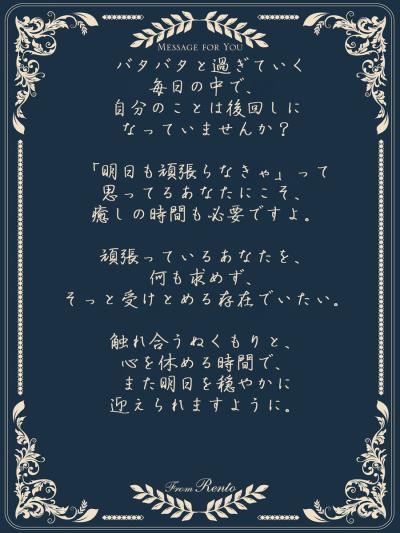 MESSAGE FOR YOU
バタバタと過ぎていく
毎日の中で、
自分のことは後回しに
なっていませんか？
「明日も頑張らなきゃ」って
思ってるあなたにこそ、
癒しの時間も必要ですよ。
頑張っているあなたを、
何も求めず、
そっと受けとめる存在でいたい。
触れ合うぬくもりと、
心を休める時間で、
また明日を穏やかに
迎えられますように。
From Rento